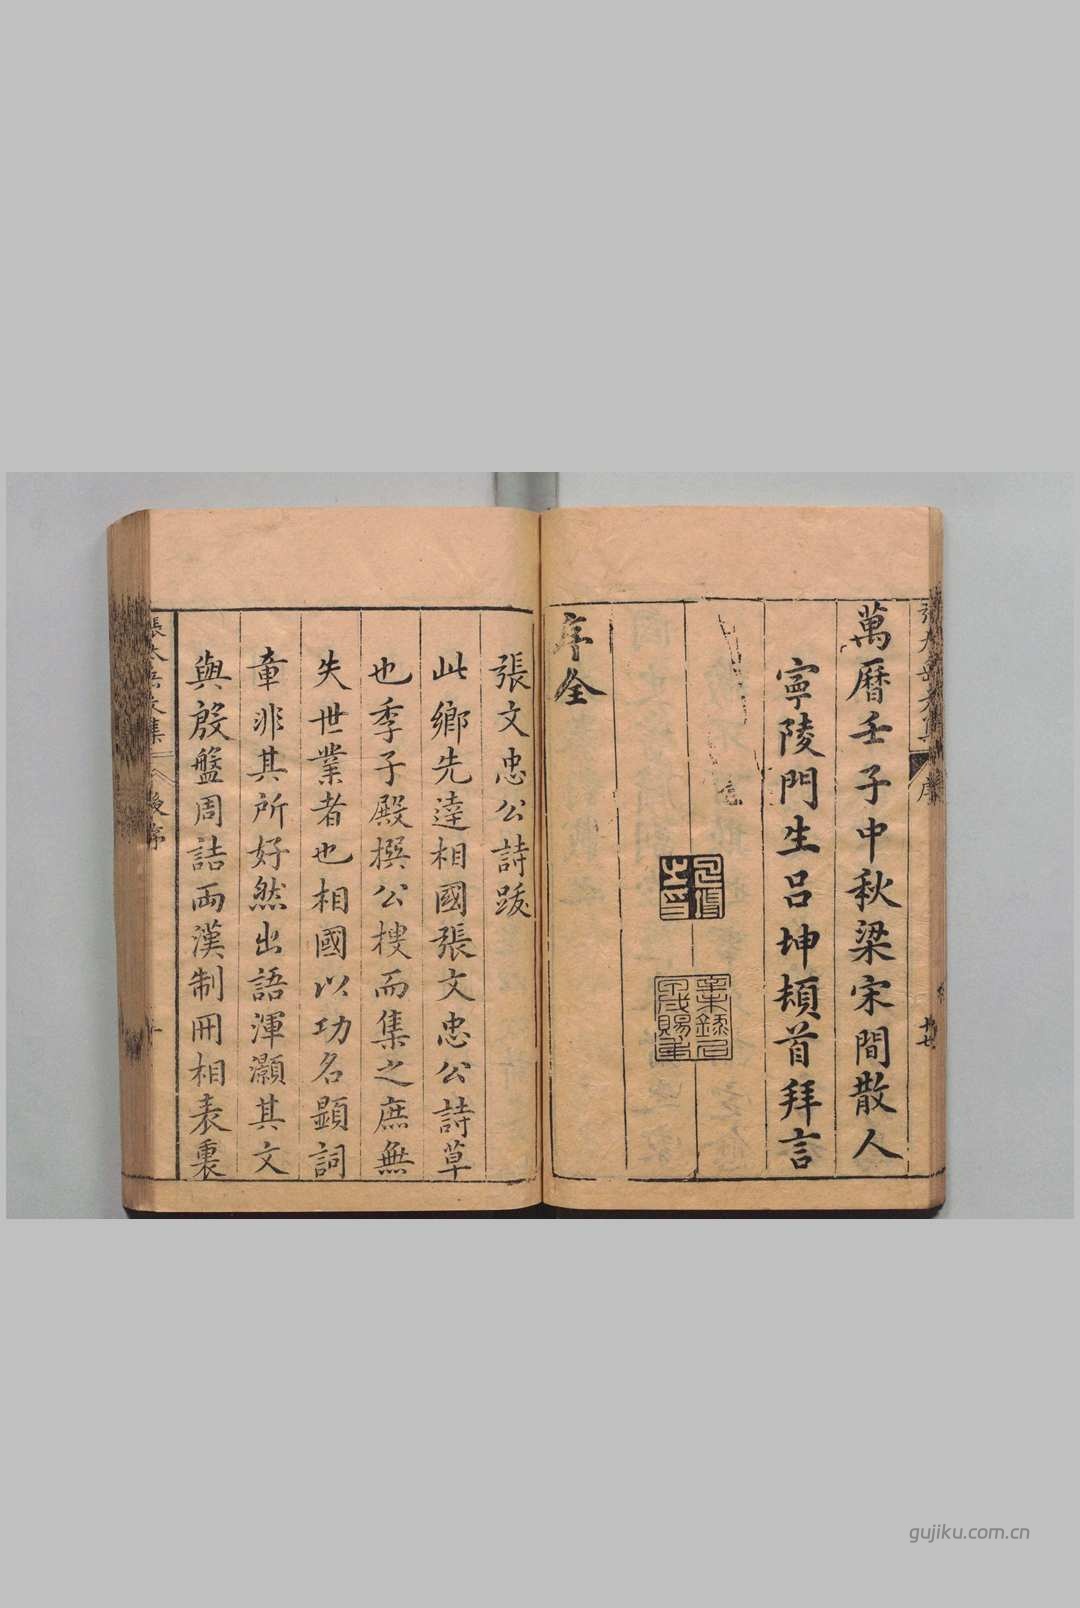 萬曆壬子中秋梁宋間散人
寧陵門生呂坤頓首拜言
序全
張文忠公詩跋
此鄉先達相國張文忠公詩草
也季子殿撰公搜而集之庶無
失世業者也相國以功名顯詞
章非其所好然出語渾灝其文
與殷盤周誥兩漢制冊相表裏
張太岳文集
後序
gujiku.com.cn